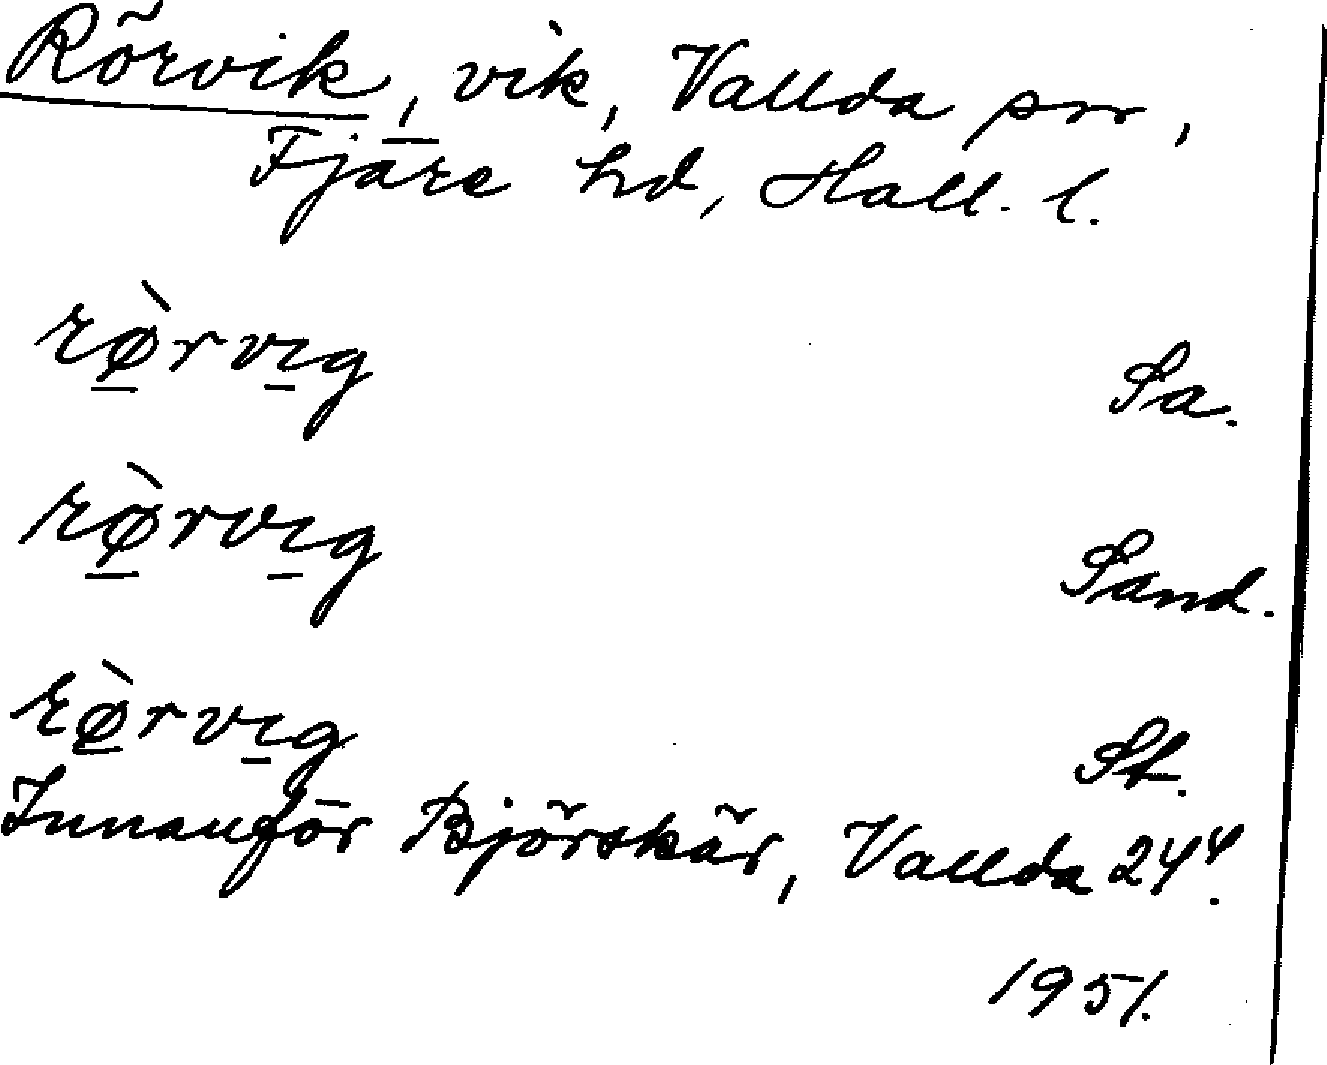 Rörvik, vik, Vallda sn,
Fjäre hd, Hall. l.
rø̀rvig Sa.
rø̀rvig Sand.
rø̀rvig St.
Innanför Björskär, Vallda 24⁴.
1951.